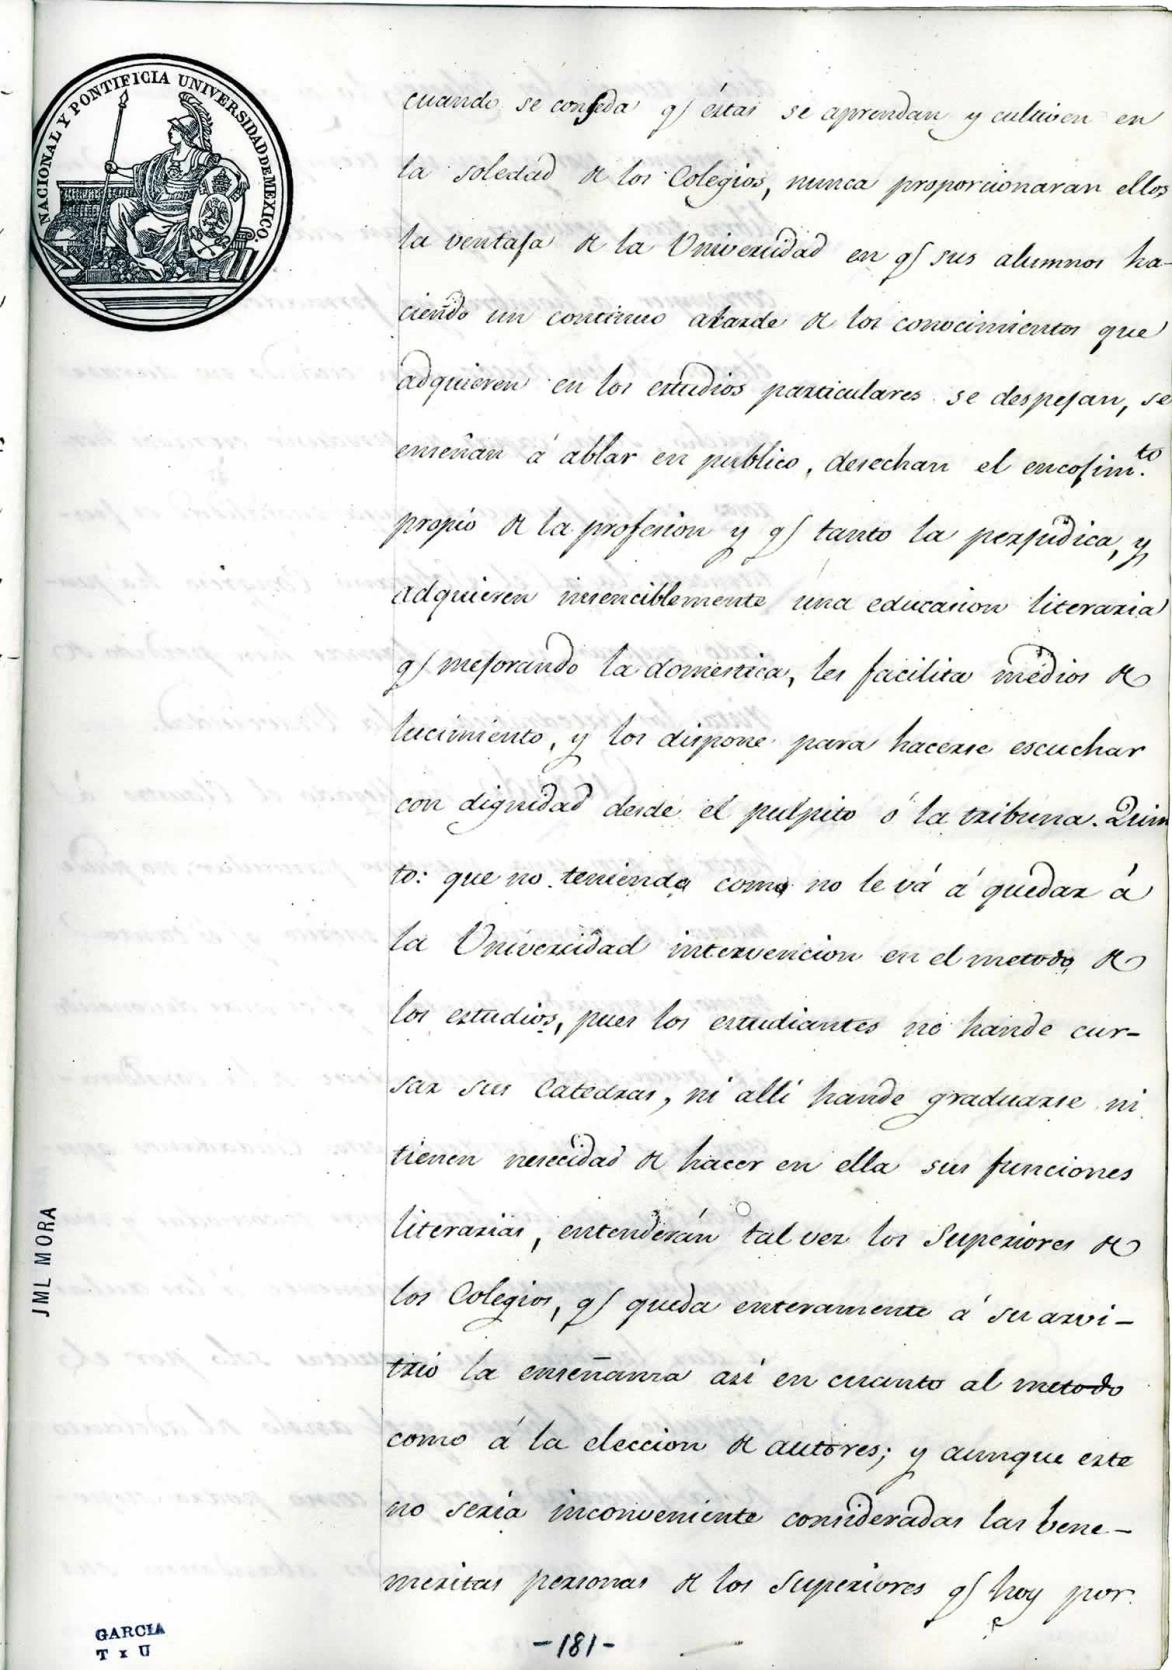 NACIONAL Y PONTIFICIA UNIVERSIDAD DE MEXICO.
cuando se conseda q̃ éstas se aprendan y cultiven en
la soledad de los Colegios, nunca proporcionaran ellos
la ventaja de la Univercidad en q̃ sus alumnos ha-
ciendo un continuo alarde de los conocimientos que
adquieren en los estudios particulares se despejan, se
enseñan á ablar en publico, desechan el encojim.to
propio de la profesion y q̃ tanto la perjudica, y
adquieren insenciblemente una educasion literaria
q̃ mejorando la domestica, les facilita medios de
lucimiento, y los dispone para hacerse escuchar
con dignidad desde el pulpito ó la tribuna. Quin
to: que no teniendo como no le vá á quedar á
la Univercidad intervencion en el metodo de
los estudios, pues los estudiantes no hande cur-
sar sus Catedras, ni alli hande graduarse ni
tienen nesecidad de hacer en ella sus funciones
literarias, entenderán tal vez los Superiores de
los Colegios, q̃ queda enteramente á su arvi-
trio la enseñanza asi en cuanto al metodo
como á la eleccion de autores; y aunque este
no seria inconveniente consideradas las bene-
meritas personas de los Superiores q̃ hoy por
JML MORA
GARCIA
T x U
-181-